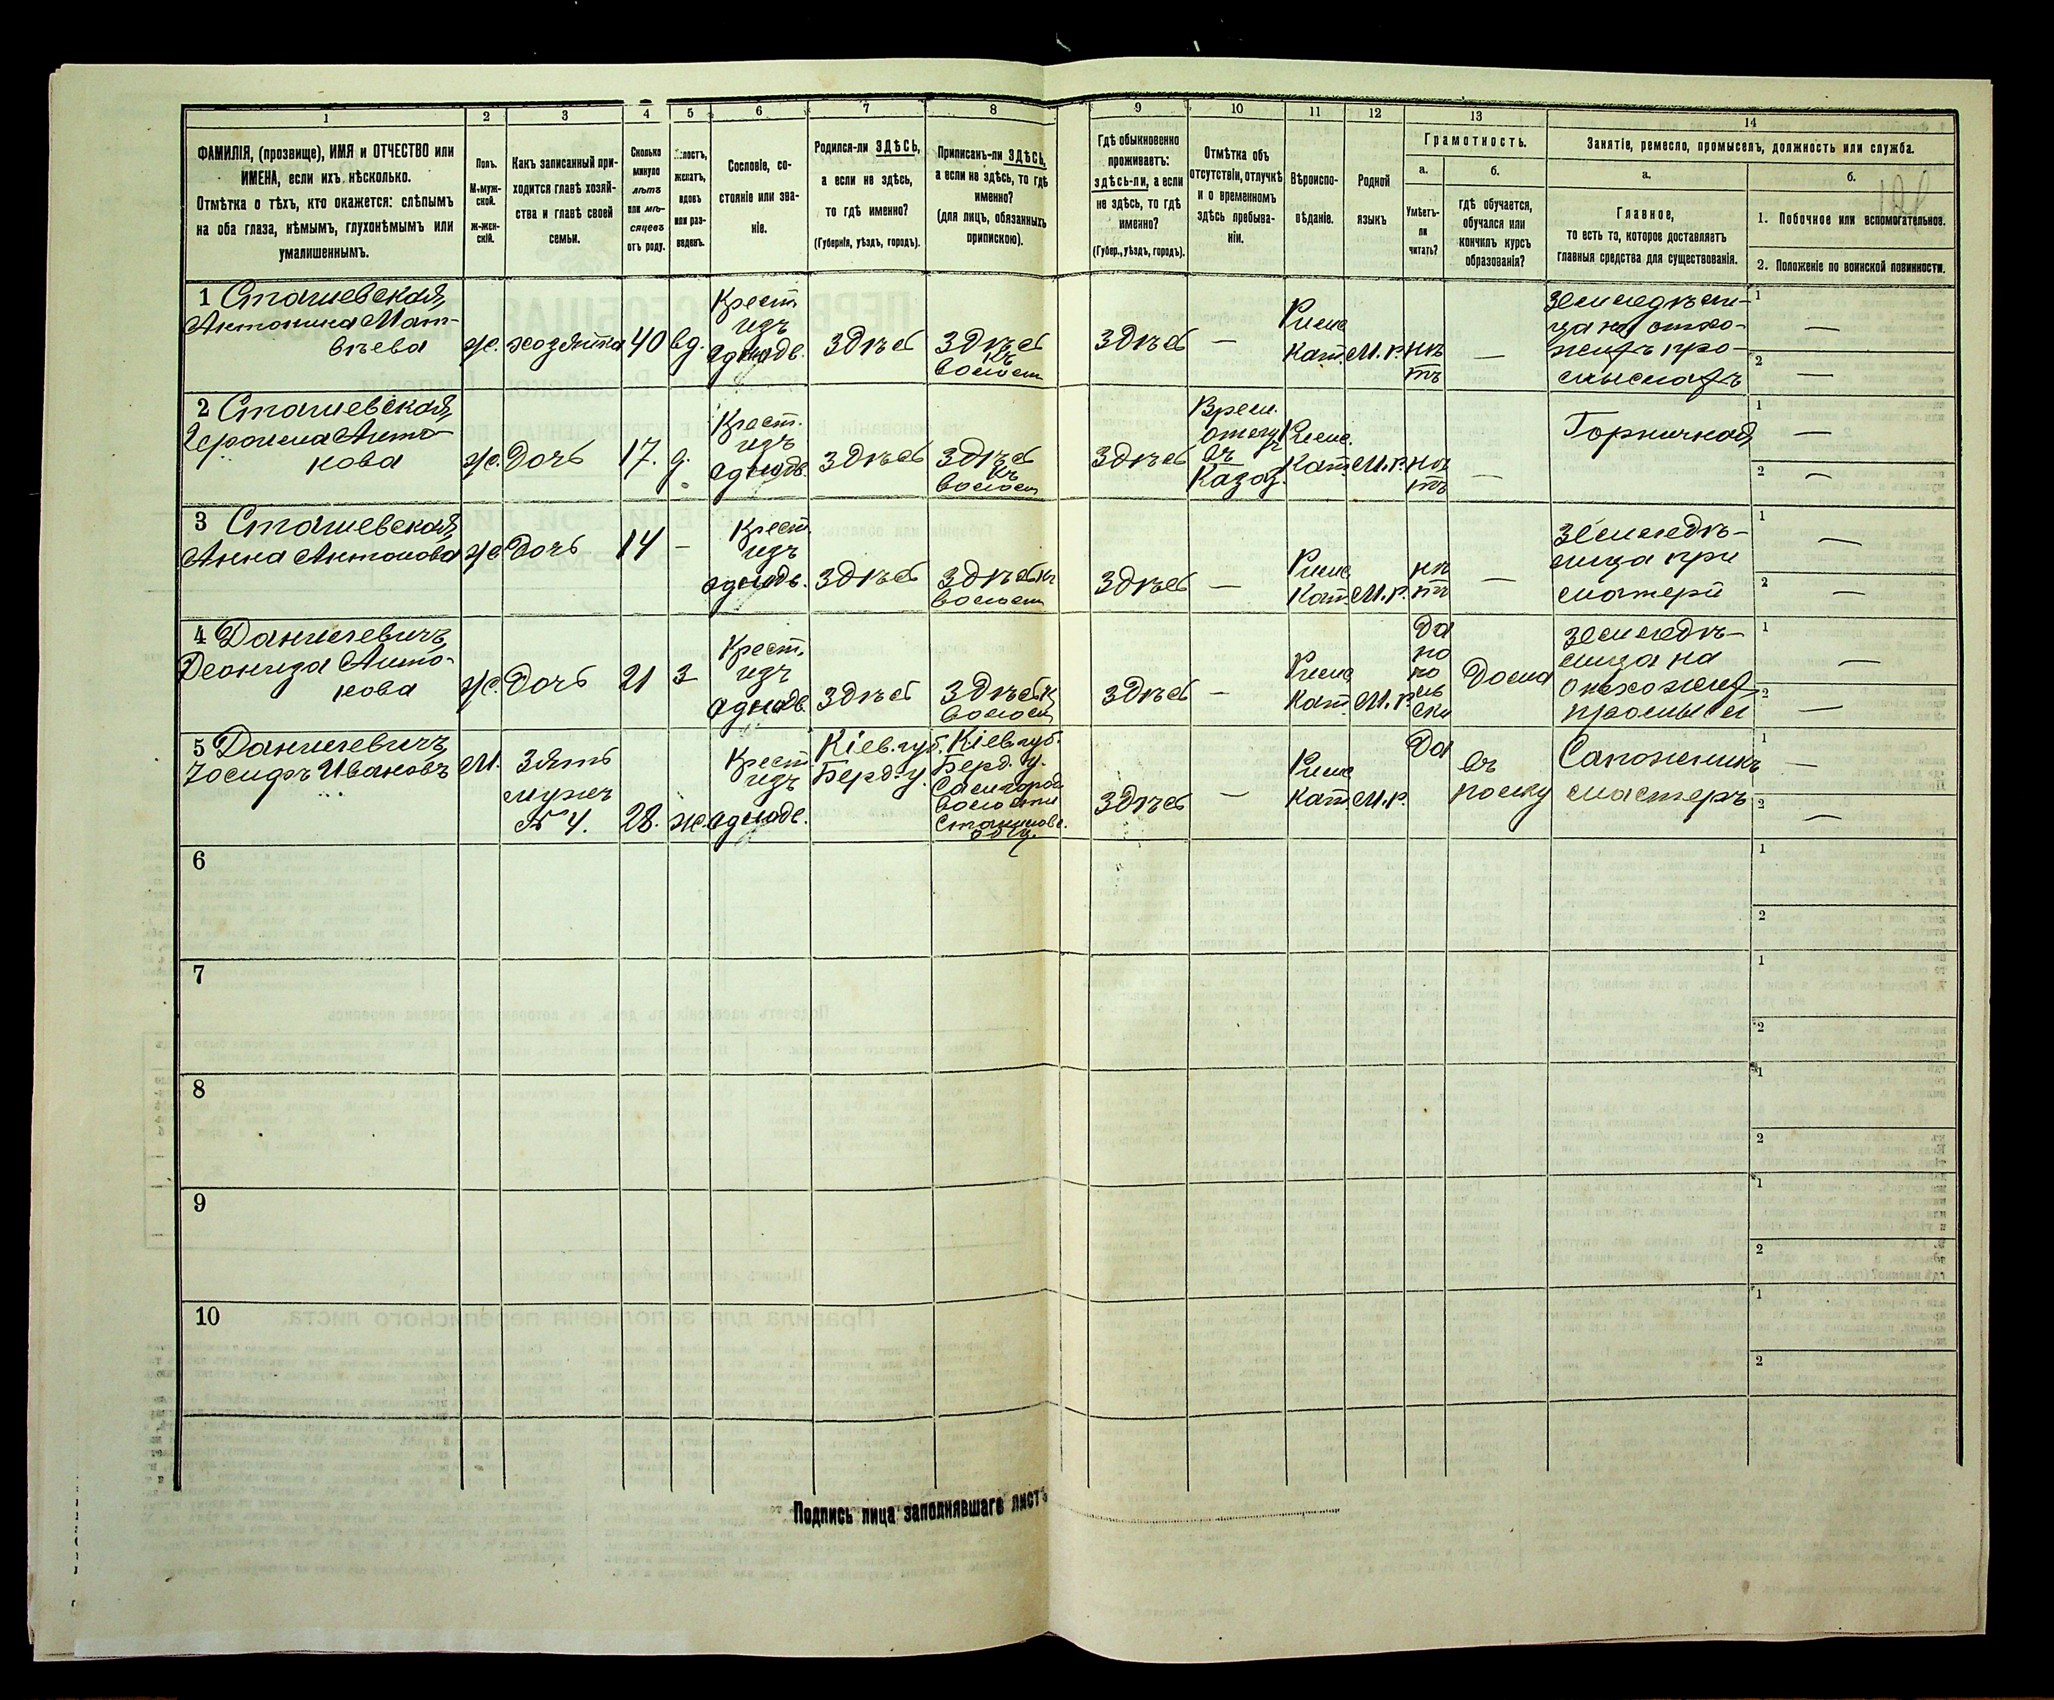 1
2
3
4
5
6
7
8
9
10
11
12
13
14
ФАМИЛІЯ, (прозвище), ИМЯ и ОТЧЕСТВО или
ИМЕНА, если ихъ нѣсколько.
Отмѣтка о тѣхъ, кто окажется: слѣпымъ
на оба глаза, нѣмымъ, глухонѣмымъ или
умалишеннымъ.
Полъ.
М-муж-
ской.
ж-жен-
скій.
Какъ записанный при-
ходится главѣ хозяй-
ства и главѣ своей
семьи.
Сколько
минуло
лѣтъ
или мѣ-
сяцевъ
отъ роду.
Холостъ,
женатъ,
вдовъ
или раз-
веденъ.
Сословіе, со-
стояніе или зва-
ніе.
Родился-ли ЗДѢСЬ,
а если не здѣсь,
то гдѣ именно?
(Губернія, уѣздъ, городъ).
Приписанъ-ли ЗДѢСЬ,
а если не здѣсь, то гдѣ
именно?
(для лицъ, обязанныхъ
припискою).
Гдѣ обыкновенно
проживаетъ:
здѣсь-ли, а если
не здѣсь, то гдѣ
именно?
(Губер., уѣздъ, городъ).
Отмѣтка объ
отсутствіи, отлучкѣ
и о временномъ
здѣсь пребыва-
ніи.
Вѣроиспо-
вѣданіе.
Родной
языкъ
Грамотность.
а.
Умѣетъ-
ли
читать?
б.
гдѣ обучается,
обучался или
кончилъ курсъ
образованія?
Занятіе, ремесло, промыселъ, должность или служба.
а.
Главное,
то есть то, которое доставляетъ
главныя средства для существованія.
б.
1. Побочное или вспомогательное.
2. Положеніе по воинской повинности.
1 Сташевская,
Антонина Мат-
вѣева
ж.
хозяйка
40
вд.
Крест.
изъ
однодв.
Здѣсь
Здѣсь
къ
волост
Здѣсь
—
Римс
Кат.
М. р.
нѣ
тъ
—
Земледѣли-
ца на отхо-
жихъ про-
мыслахъ
1
—
2
—
2 Сташевская,
Анто-
нова
ж.
Дочь
17.
д.
Крест.
изъ
однодв.
Здѣсь
Здѣсь
къ
волост
Здѣсь
Врем.
въ
Римс.
Кат.
М. р.
нѣ
тъ
—
Горничная
1
—
2
—
3 Сташевская,
Анна Антонова
ж.
Дочь
14
—
Крест.
изъ
однодв.
Здѣсь
Здѣсь къ
волост
Здѣсь
—
Римс
Кат.
М. р.
нѣ
тъ
—
Земледѣ-
лица при
матери
1
—
2
—
4 Данилевичъ,
Леонида Анто-
нова
ж.
Дочь
21
з
Крест.
изъ
однодв.
Здѣсь
Здѣсь к
волост
Здѣсь
—
Римс
Кат.
М. р.
Да
по
по
ль
ски
Дома
Земледѣ-
лица на
1
—
2
—
5 Данилевичъ,
Іосифъ Ивановъ
М.
Зять
мужъ
№ 4.
28.
ж.
Крест
изъ
однодв.
Кіев. губ.
Берд. у.
Кіев. губ.
Берд. у.
волости
Здѣсь
—
Римс
Кат.
М. р.
Да
въ
полку
Сапожникъ
мастеръ
1
—
2
—
6
1
2
7
1
2
8
1
2
9
1
2
10
1
2
Подпись лица заполнявшаго листъ